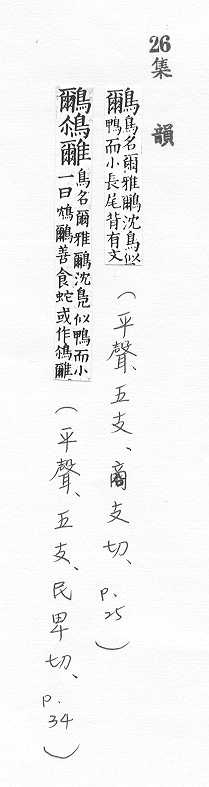 26 集韻
鸍鳥名爾雅鸍沈鳧似鴨而小長尾背有文(平聲、五支、商支切、p.25)
鸍𪀔䨲鳥名爾雅鸍沈鳧似鴨而小一曰鴆鸍善食蛇或作𪀔䨲(平聲、五支、民卑切、p.34)